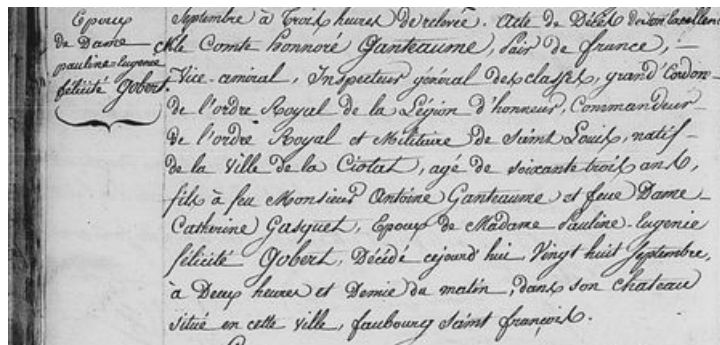 Epoux
de Dame
pauline-Eugenie
félicité Gobert.
Septembre à Trois heures de relevée. Acte de Décès de son Excellence
Mr le Comte honnoré Ganteaume, Pair de france, —
Vice-amiral, Inspecteur général des classes, grand Cordon
de l'ordre Royal de la Légion d'honneur, Commandeur
de l'ordre Royal et Militaire de Saint Louis, natif
de la Ville de la Ciotat, agé de soixante trois ans,
fils à feu Monsieur Antoine Ganteaume et feue Dame
Catherine Gasquet, Epoux de Madame Pauline-Eugenie
félicité Gobert, Décédé cejourd'hui Vingt huit Septembre,
à Deux heures et Demie du matin, dans son chateau
situé en cette ville, faubourg saint françois.